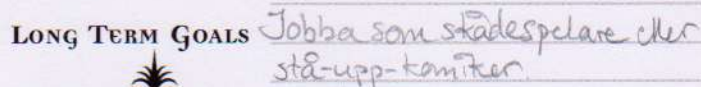 LONG TERM GOALS Jobba som skådespelare eller
stå-upp-komiker.